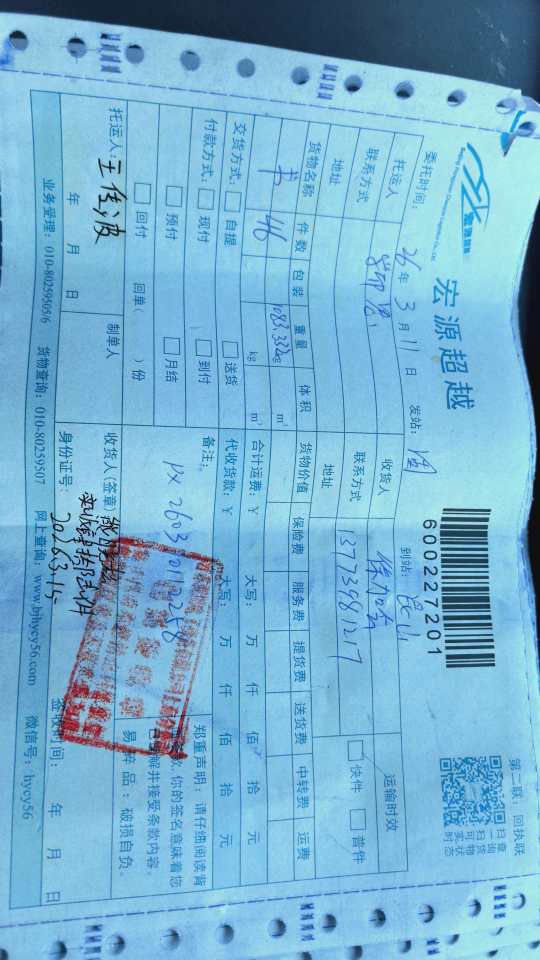 宏源超越
宏源超越
600227201
第二联：回执联
扫一扫可实时
查询货物状态
委托时间：26年3月11日 发站： 到站：昆山
运输时效
托运人
收货人
联系方式
联系方式 13773981217
快件 普件
地址
地址
货物名称 件数 包装 重量 体积 货物价值 保险费 服务费 提货费 送货费 中转费 运费
书 46 1083.332kg m³
交货方式： 自提 送货 合计运费：￥ 大写： 万 仟 佰 拾 元
付款方式： 现付 到付 代收货款：￥ 大写： 万 仟 佰 拾 元
预付 月结
备注：
郑重声明：请仔细阅读背
你的签名意味着您
解并接受条款内容。
回付 回单（ ）份
易碎品：破损自负。
托运人： 制单人 收货人（签章）
年 月 日 身份证号： 2026.3.15 签收时间： 年 月 日
业务受理：010-80259505/6 货物查询：010-80259507 网上查询：www.bjhycy56.com 微信号：hycy56